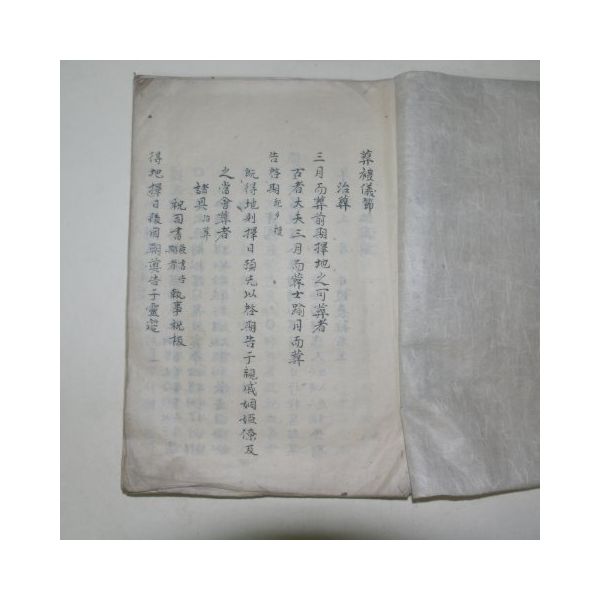 葬禮儀節
治葬
三月而葬前期擇地之可葬者
古者大夫三月而葬士踰月而葬
告啓期
既得地則擇日預先以啓期告于親戚姻婭僚友
之當會葬者
諸具治葬
祝 司書 執事 祝板
得地擇日後因朝奠告于靈筵